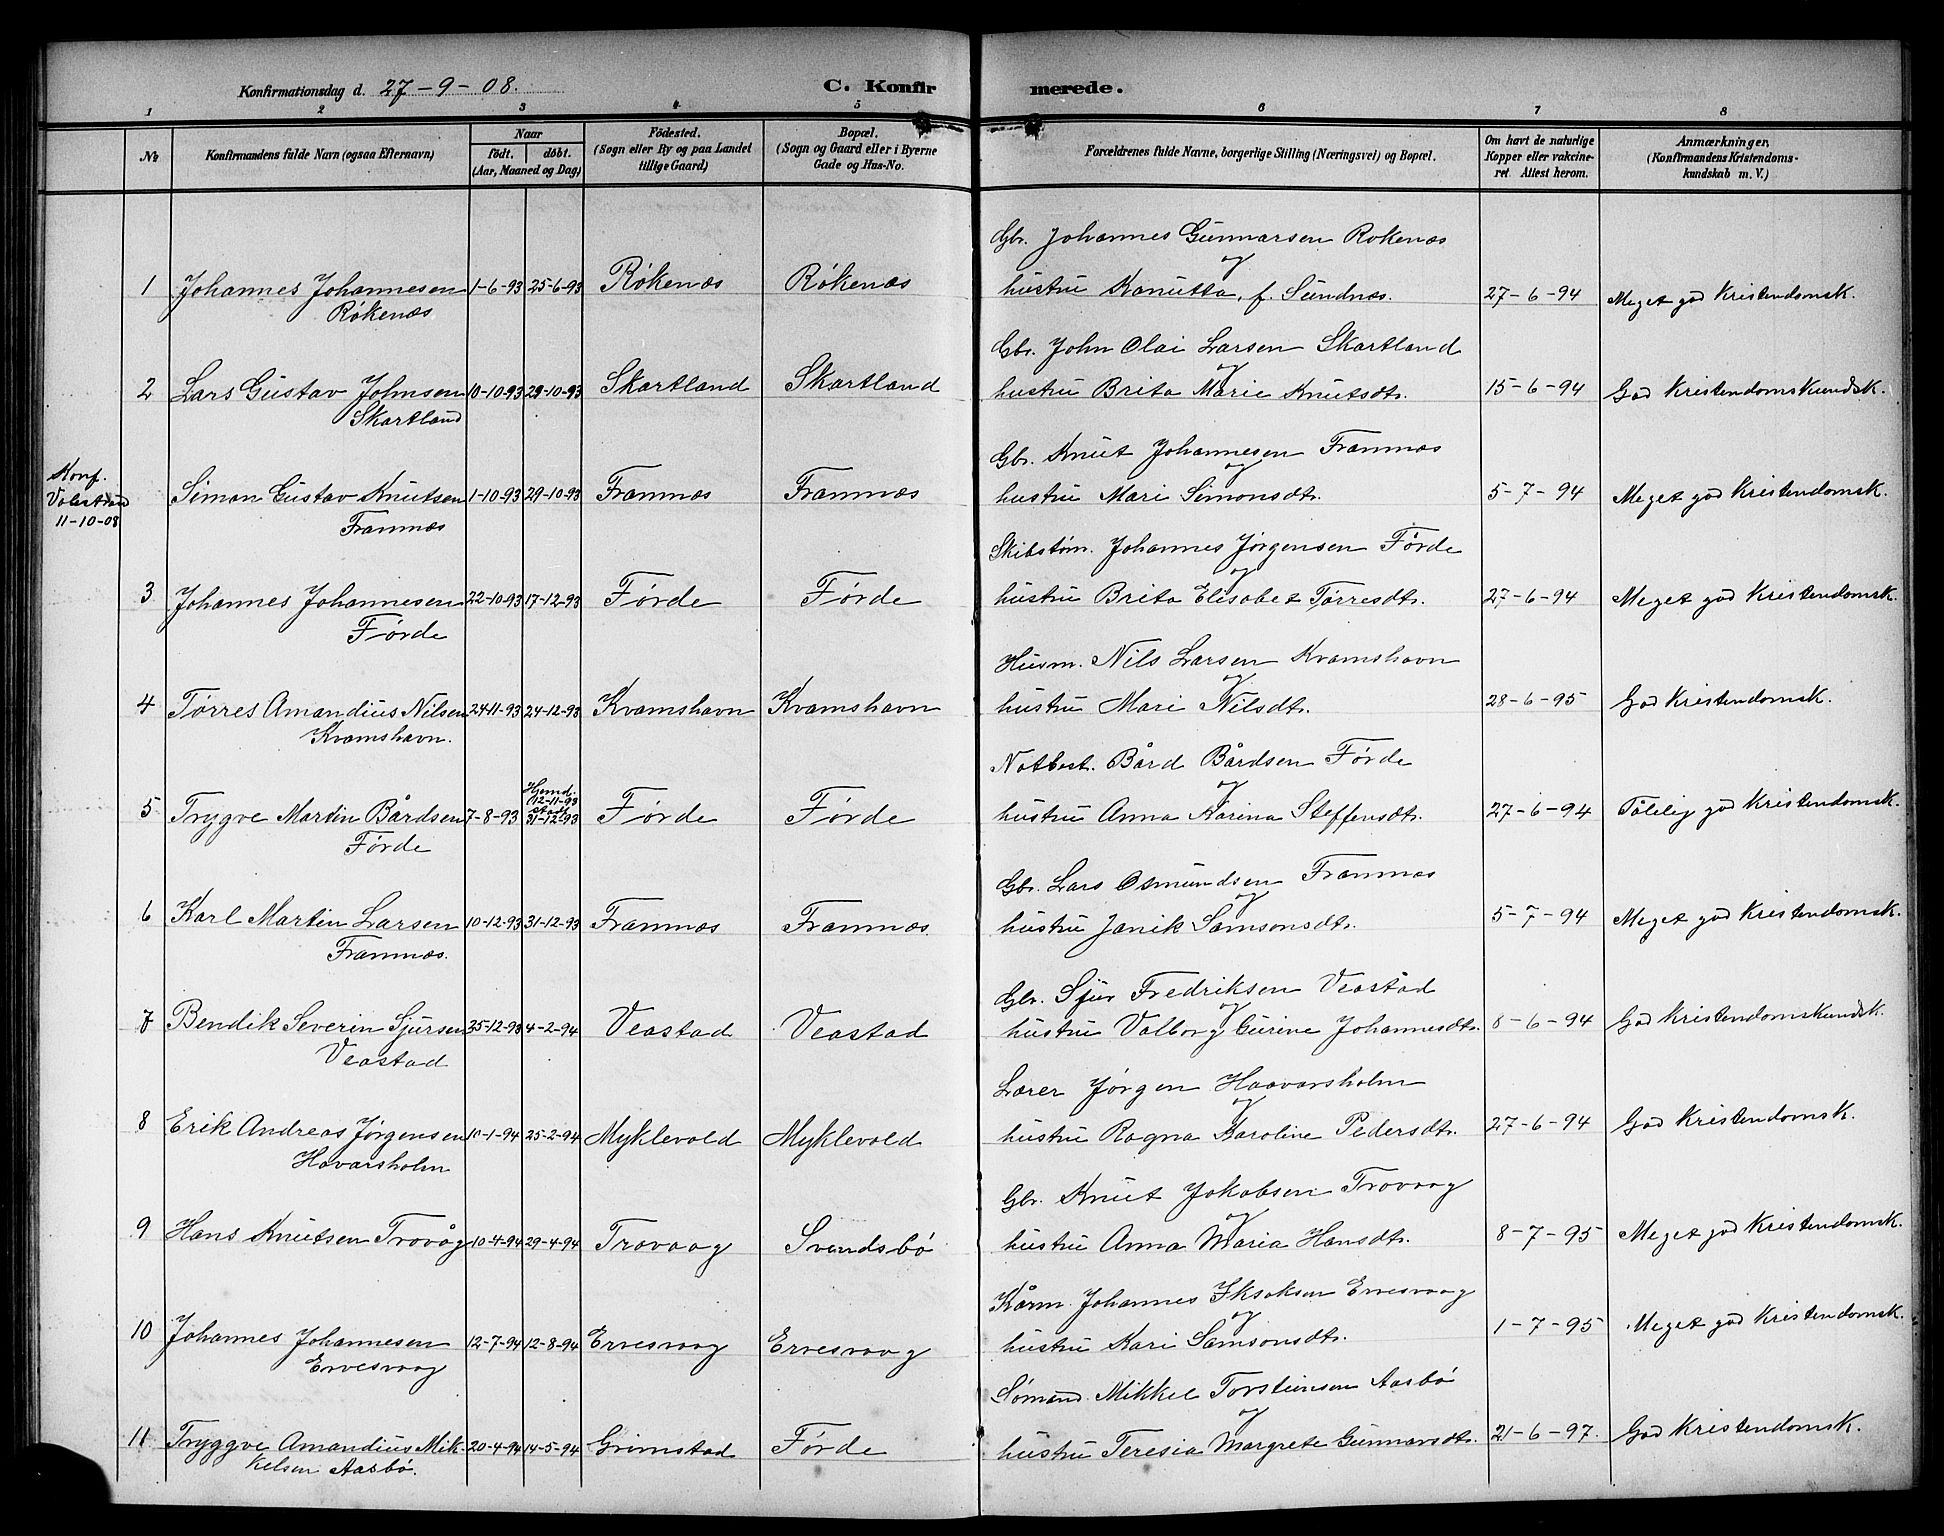 Konfirmationsdag d. 27-9-08.
C. Konfirmerede.
1 2 3 4 5 6 7 8
№ Konfirmandens fulde Navn (ogsaa Efternavn) Naar født. døbt. (Aar, Maaned og Dag) Fødested. (Sogn eller By og paa Landet tillige Gaard) Bopæl. (Sogn og Gaard eller i Byerne Gade og Hus-No. Forældrenes fulde Navne, borgerlige Stilling (Næringsvei) og Bopæl. Om havt de naturlige Kopper eller vakcineret Attest herom. Anmærkninger. (Konfirmandens Kristendomskundskab m. V.)
Gbr. Johannes Gunnarsen Rokenæs
og
1 Johannes Johannesen 1-6-93 25-6-93 Røkenæs Røkenæs hustru Kanutta, f. Sundnæs. 27-6-94 Meget god Kristendomsk.
Røkenæs
Gbr. John Olai Larsen Skartland
og
2 Lars Gustav Johnsen 10-10-93 29-10-93 Skartland Skartland hustru Brita Marie Knutsdtr. 15-6-94 God Kristendomskundsk.
Skartland
Gbr. Knut Johannesen Framnæs
og
Konf.
Valestrand
11-10-08
Simon Gustav Knutsen 1-10-93 29-10-93 Framnæs Framnæs hustru Mari Simonsdtr. 5-7-94 Meget god Kristendomsk.
Framnæs
Skibstøm. Johannes Jørgensen Førde
og
3 Johannes Johannesen 22-10-93 17-12-93 Førde Førde hustru Brita Elisabet Tørresdtr. 27-6-94 Meget god Kristendomsk.
Førde
Husm. Nils Larsen Kvamshavn
og
4 Tørres Amandius Nilsen 24-11-93 24-12-93 Kvamshavn Kvamshavn hustru Mari Nilsdtr. 28-6-95 God Kristendomsk.
Kvamshavn.
Notbest. Bård Bårdsen Førde
og
Hjemd.
(12-11-93
stadf.
5 Trygve Martin Bårdsen 7-8-93 31-12-93 Førde Førde hustru Anna Karina Steffensdtr. 27-6-94 Tålelig god Kristendomsk.
Førde
Gbr. Lars Osmundsen Framnæs
og
6 Karl Martin Larsen 10-12-93 31-12-93 Framnæs Framnæs. hustru Janik Samsonsdtr. 5-7-94 Meget god Kristendomsk.
Framnæs.
Gbr. Sjur Fredriksen Veastad
og
7 Bendik Severin Sjursen 25-12-93 4-2-94 Veastad Veastad hustru Valborg Gurine Johannesdtr. 8-6-94 God Kristendomskundsk.
Veastad
Lærer Jørgen Haavarsholm
og
8 Erik Andreas Jørgensen 10-1-94 25-2-94 Myklevold Myklevold hustru Ragna Karoline Pedersdtr. 27-6-94 God Kristendomsk.
Havarsholm
Gbr. Knut Jakobsen Trovaag
og
9 Hans Knutsen Trovåg 10-4-94 29-4-94 Trovaag Svendsbø hustru Anna Maria Hansdtr. 8-7-95 Meget god Kristendomsk.
Kårm. Johannes Iksaksen Ervesvaag
og
10 Johannes Johannesen 12-7-94 12-8-94 Ervesvaag Ervesvaag hustru Kari Samsonsdtr. 1-7-95 Meget god Kristendomsk.
Ervesvaag
Sømand Mikkel Torsteinsen Aasbø
og
11 Tryggve Amandius Mik- 20-4-94 14-5-94 Grimstad Førde hustru Teresia Margrete Gunnarsdtr. 21-6-97. God Kristendomsk.
kelsen Aasbø.